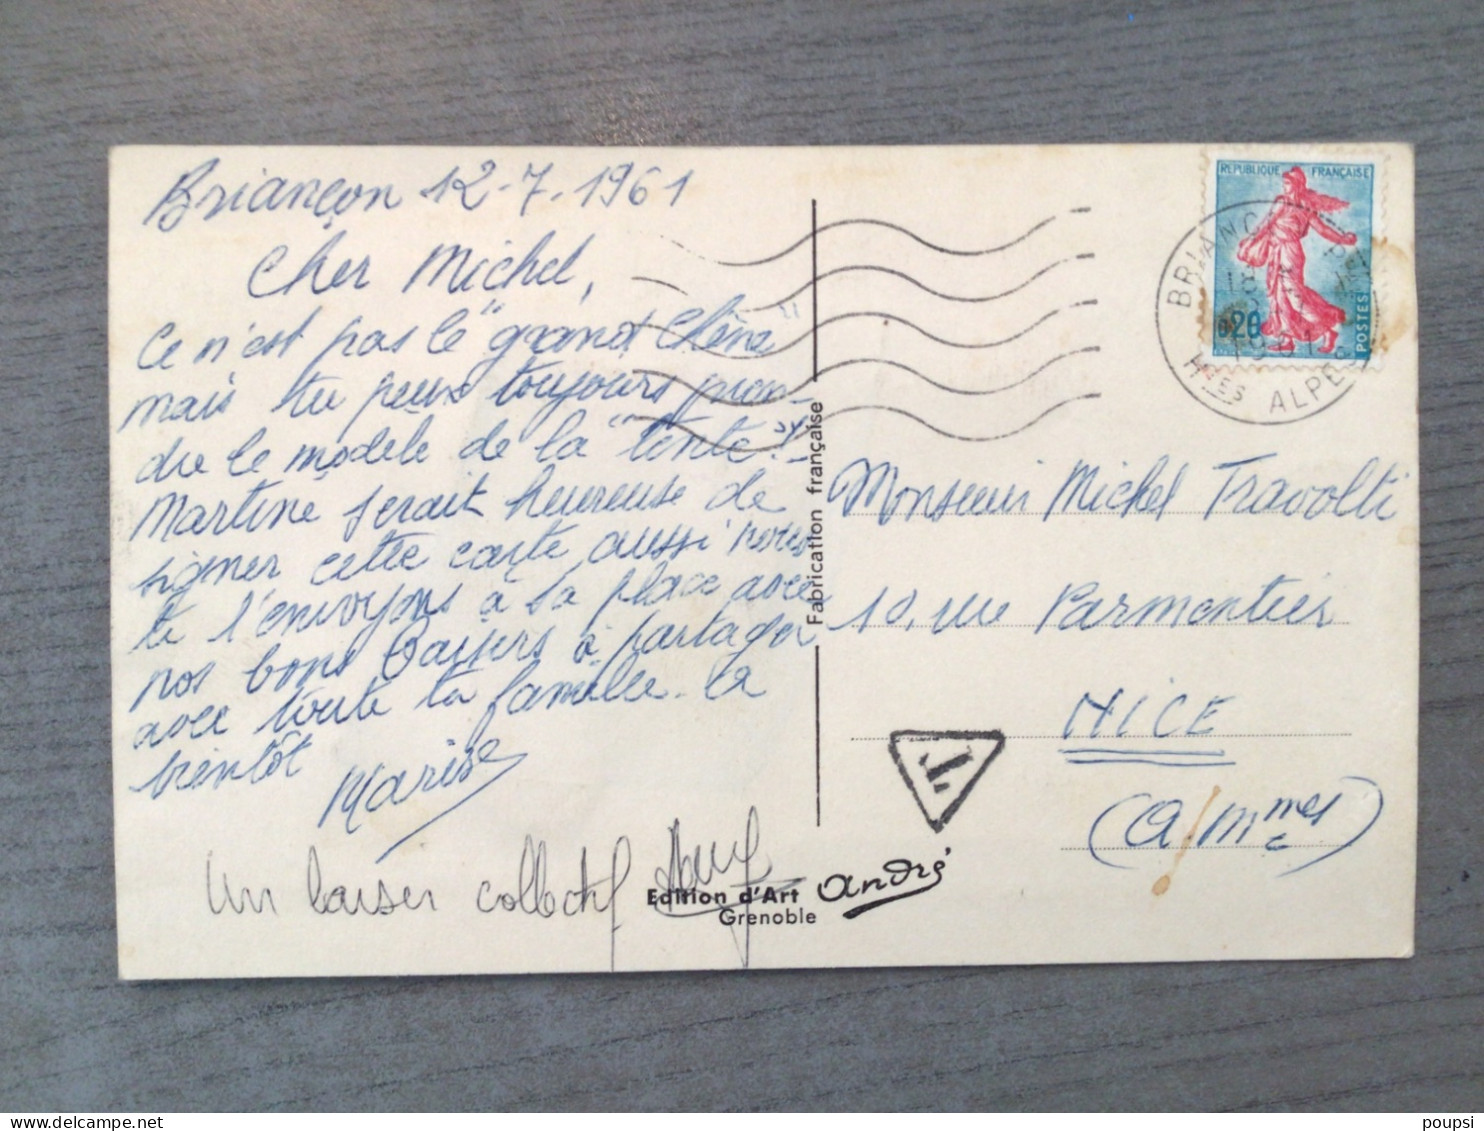 Briançon 12-7-1961
Cher Michel,
Ce n'est pas le "grand Chêne
mais tu peux toujours pren-
dre le modèle de la "tente!"
Martine serait heureuse de
signer cette carte aussi nous
te l'envoyons à sa place avec
nos bons baisers à partager
avec toute ta famille. à
bientôt
Marise
un baiser collectif
Edition d'Art andré
Grenoble
Fabrication française
REPUBLIQUE FRANÇAISE
0,20
POSTES
BRIANÇON
Htes ALPES
Monsieur Michel Travolti
10, rue Parmentier
NICE
T
(A/mmes)
poupsi